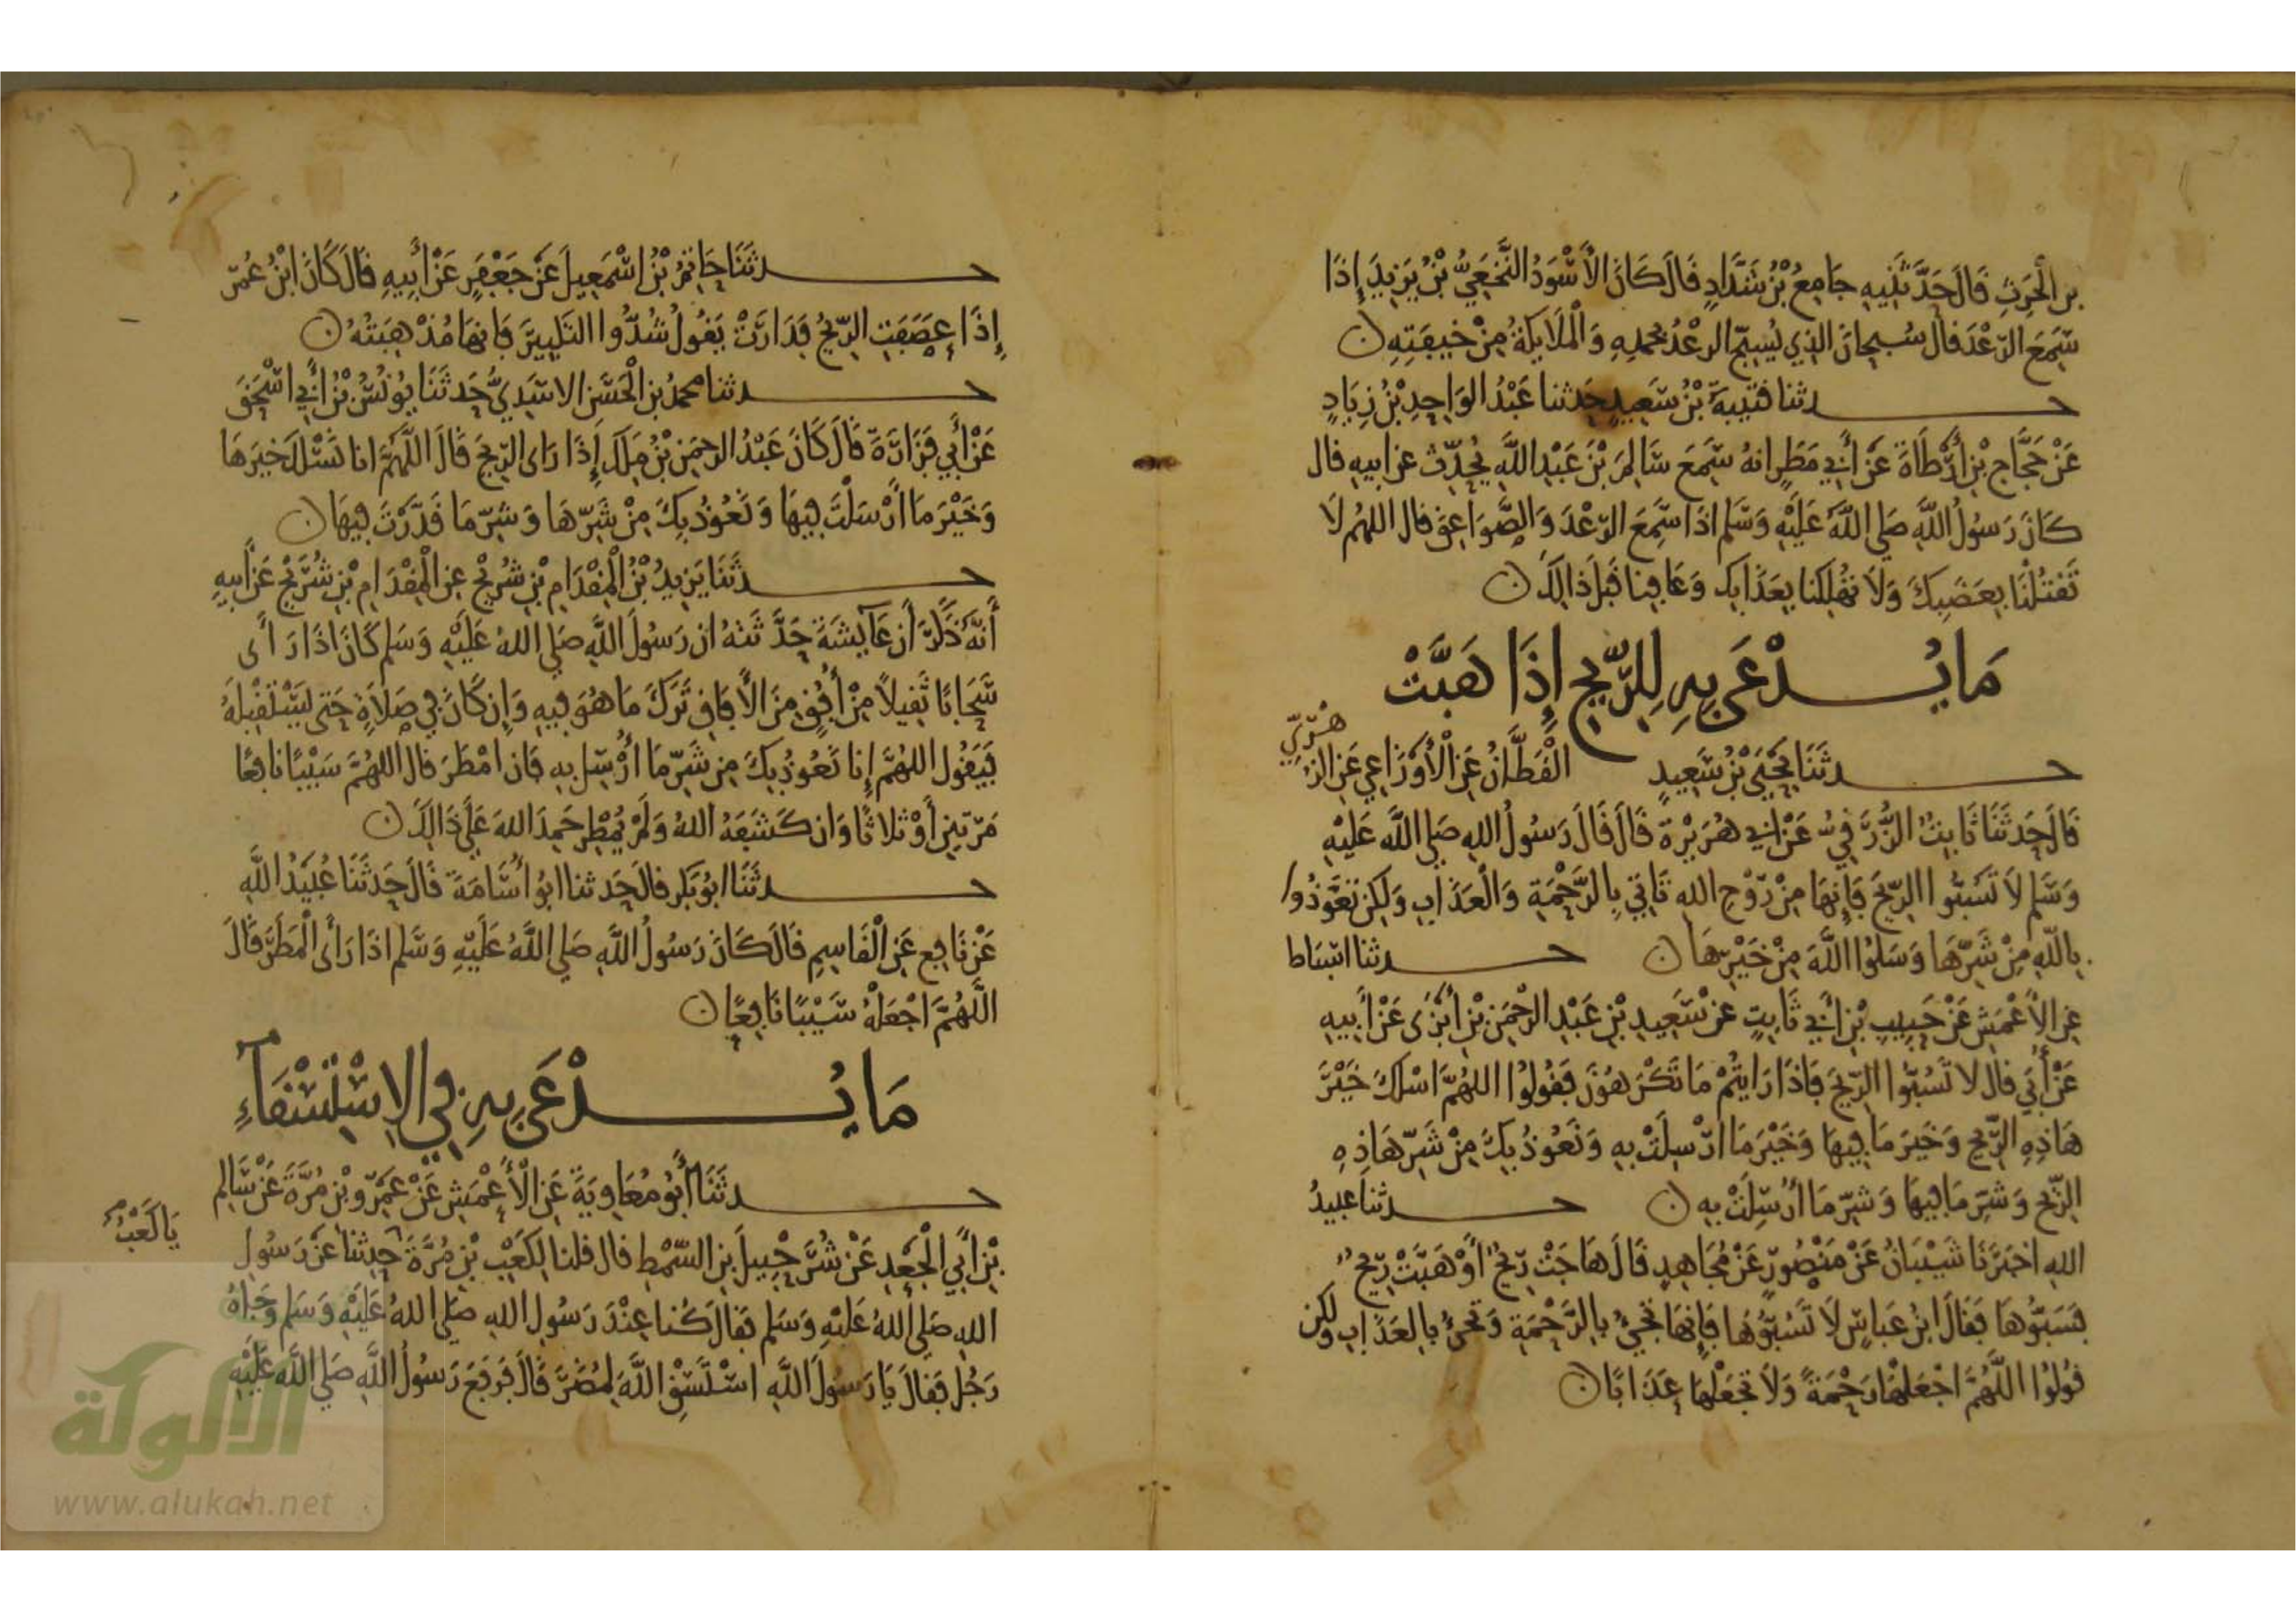 بن الحَرِثِ قَالَ حَدَّثَنِيهِ جَامِعُ بْنُ شَدَّادٍ قَالَ كَانَ الأَسْوَدُ النَّخَعِيُّ بْنُ يَزِيدَ إِذَا
سَمِعَ الرّعْدَ قال سُبحانَ الذِي يُسَبِّحُ الرعْدُ بحمدِهِ وَالْمَلَايِكَةُ مِنْ خِيفَتِهِ
حدثنا قتيبةُ بْنُ سَعِيدٍ حَدثنا عَبْدُ الوَاحِدِ بْنُ زِيَادٍ
عَنْ حَجَّاجِ بْنِ أَرْطَاةَ عَنْ أَبِي مَطَرٍ انهُ سَمِعَ سَالِمَ بْنَ عَبْدِ اللَّهِ يُحَدِّثُ عن ابيهِ قال
كَانَ رَسُولُ اللَّهِ صَلى اللَّهُ عَلَيْهِ وَسَلم اذَا سَمِعَ الرّعْدَ وَالصَّوَاعِقَ قال اللهُم لَا
تَقْتُلْنَا بِغَضَبِكَ وَلَا تهْلِكنا بِعَذَابِكَ وَعَافِنا قَبْلَ ذَالِكَ
مَا يُدْعَى بِهِ لِلرِّيحِ إِذَا هَبَّتْ
حدثَنَا يَحْيَى بْنُ سَعِيدٍ الْقَطَّانُ عَنِ الْأَوْزَاعِي عَنِ الزُّ
هْرِيِّ
قَالَ حَدثَنَا ثَابِتُ الزُّرَقِيُّ عَنْ ابِي هُرَيْرَةَ قَالَ قَالَ رَسُولُ اللهِ صَلى اللَّه عَلَيْهِ
وَسَّلم لَا تَسُبُّوا الرِّيحَ فَإِنهَا مِنْ رَوْحِ اللهِ تَاتِي بِالرَّحْمَةِ وَالْعَذَابِ وَلَكِن تَعَوَّذُوا
بِاللّهِ مِنْ شَرِّهَا وَسَلُوا اللَّهَ مِنْ خَيْرِهَا حدثنا اسْبَاط
عنِ الأَعْمَشِ عَنْ حَبِيبِ بْنِ أَبِي ثَابِتٍ عن سَعِيدِ بْنِ عَبْدِ الرَّحْمَنِ بْنِ أَبْزَى عَنْ أَبِيهِ
عَنْ أُبَي قال لا تَسُبّوا الرِّيحَ فَاذَا رَايتُمْ مَا تَكْرَهُونَ فَقُولُوا اللهُمَّ اسْلكَ خَيْرَ
هَاذِهِ الرِّيحِ وَخَيرَ مَا فِيهَا وَخَيْرَ مَا ارْسِلَتْ بِهِ وَنَعُوذُ بِكَ مِنْ شَرِّ هَاذِهِ
الرِّيحِ وَشَرِّ مَا فِيهَا وَشَرِّ مَا أُرْسِلَتْ بِهِ حدثنا عبيدُ
اللهِ اخبَرَنَا شَيْبَانُ عَنْ مَنْصُورٍ عَنْ مُجَاهِدٍ قَالَ هَاجَتْ رِيحٌ أَوْ هَبَّتْ رِيحٌ
فَسَبُّوهَا فَقَالَ ابْنُ عَبَاسٍ لَا تَسُبُّوهَا فَإِنهَا تَجِيُ بِالرَّحْمَةِ وَتَجِيُ بِالعَذَابِ ولكن
قُولُوا اللَّهُمَّ اجْعَلْهَا رَحْمَةً وَلَا تَجْعَلْهَا عَذَابًا
حدثَنَا حَاتِمُ بْنُ اسْمَعِيلَ عَنْ جَعْفَرٍ عَنْ أَبِيهِ قَالَ كَانَ ابْنُ عُمَرَ
إِذَا عَصَفَتِ الرِّيحُ فَدَارَتْ يَقُولُ شُدُّوا التَّكْبِيرَ فَانهَا مُذْهِبَتُهُ
حدثنا محمدُ بن الْحَسَنِ الاسَدِيُّ حَدثَنَا يُونُسُ بْنُ أَبِي اسْحَقَ
عَنْ أَبِي فَزَارَةَ قَالَ كَانَ عَبْدُ الرحْمَنِ بْنُ مَلَك إِذَا رَاى الرِّيحَ قَالَ اللَّهُمَّ انا نَسْلكَ خَيرَهَا
وَخَيْرَ مَا أَرْسَلْتَ فِيهَا وَنَعُوذُ بِكَ مِنْ شَرِّهَا وَشَرِّ مَا قَدَّرْتَ فِيهَا
حدثَنَا يَزِيدُ بْنُ الْمِقْدَامِ بْنِ شُرَيْحٍ عنِ الْمِقْدَامِ بْنِ شُرَيْحٍ عَنْ أَبِيهِ
أَنَّهُ ذَكَرَ أَن عَايِشَةَ حَدَّثَتْهُ ان رَسُولَ اللَّهِ صَلى اللهُ عَلَيْهِ وَسَلم كَانَ اذَا رَأَى
سَحَابًا ثَقِيلًا مِنْ أُفُقٍ مِنَ الْآفَاقِ تَرَكَ مَا هُوَ فِيهِ وَإِن كَانَ فِي صَلَاةٍ حَتى يَسْتَقْبِلَهُ
فَيَقُولُ اللهُمَّ إِنا نَعُوذُ بِكَ مِن شَرِّ مَا أُرْسِلَ بِهِ فَان امْطَرَ قال اللهُمَّ سَيْبًا نافِعًا
مَرّتينِ أَوْ ثلاثًا وَان كَشَفَهُ اللهُ وَلَمْ يُمْطِر حَمِدَ اللهَ عَلَى ذَالِكَ
حدثَنَا ابُو بَكر قالَ حَدثنا ابُو أُسَامَةَ قَالَ حَدثَنَا عُبَيْدُ اللَّهِ
عَنْ نَافِعٍ عَنِ الْقَاسِمِ قَالَ كَانَ رَسُولُ اللَّهِ صَلى اللَّهُ عَلَيْهِ وَسَّلم اذَا رَأَى الْمَطَرَ قَالَ
اللَّهُمَّ اجْعَلْهُ سَيْبًا نَافِعًا
مَا يُدْعَى بِهِ فِي الاِسْتِسْقَاءِ
حدثَنَا أَبُو مُعَاوِيَةَ عَنِ الْأَعْمَشِ عَنْ عَمْرِو بْنِ مُرَّةَ عَنْ سَالِمِ
بْنِ أَبِي الْجَعْدِ عَنْ شُرَحْبِيلَ بنِ السّمْطِ قال قلنا لِكَعْبِ بْنِ مُرَّةَ حدثنا عَن رَسُولِ
يَا كَعْبُ
اللهِ صَلى اللهُ عَلَيْهِ وَسَلم فقَالَ كُنا عِنْدَ رَسُولِ اللهِ صَلى اللهُ عَلَيْهِ وَسَلم وَجَاهُ
رَجُل فَقَالَ يَا رَسُولَ اللَّهِ اسْتَسْقِ اللَّهَ لِمُضَرَ قَالَ فَرَفَعَ رَسُولُ اللَّهِ صَلى اللَّه عَلَيْهِ
الألوكة
www.alukah.net